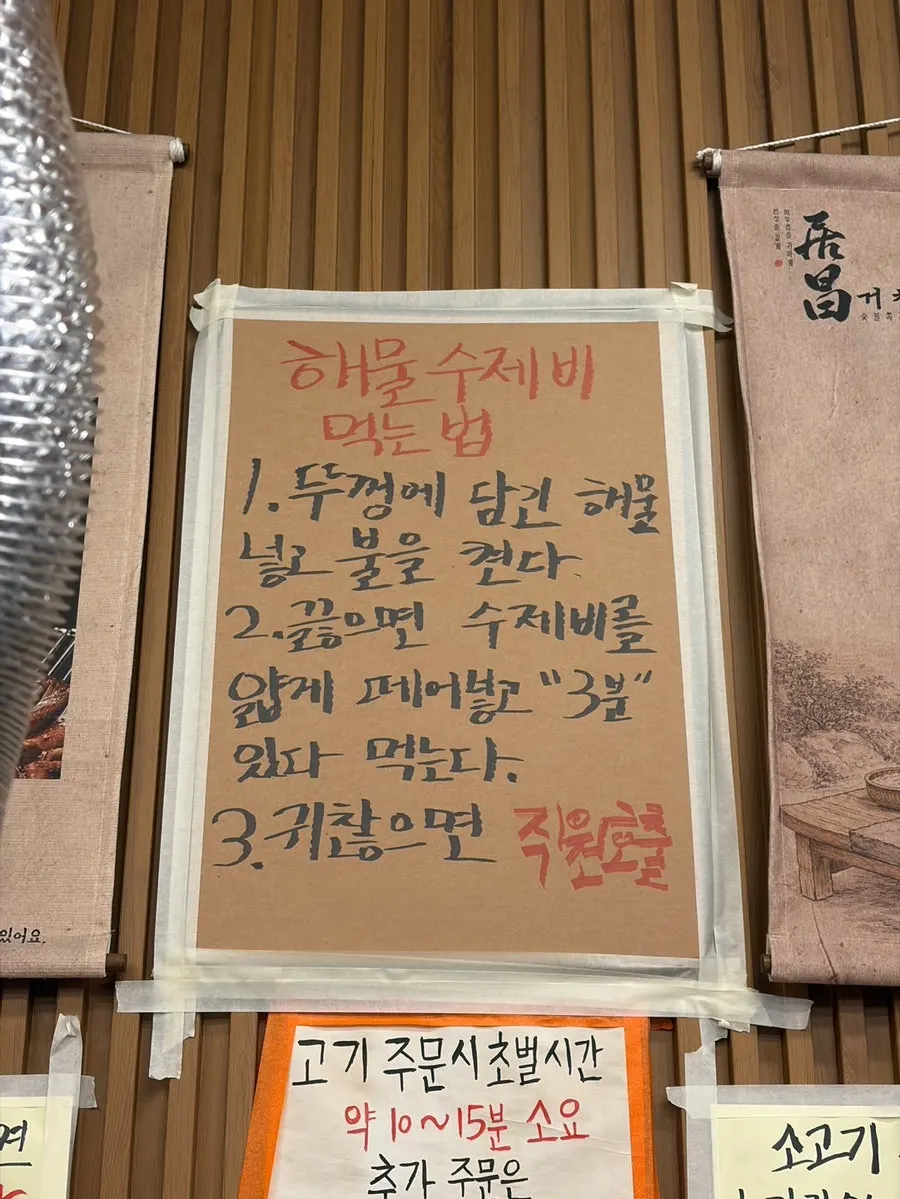 해물수제비
먹는법
1. 뚜껑에 담긴 해물
넣고 불을 켠다.
2. 끓으면 수제비를
얇게 떼어넣고 "3분"
있다 먹는다.
3. 귀찮으면 직원호출
고기 주문시 초벌시간
약 10~15분 소요
추가 주문은
居昌
있어요.
면
소고기